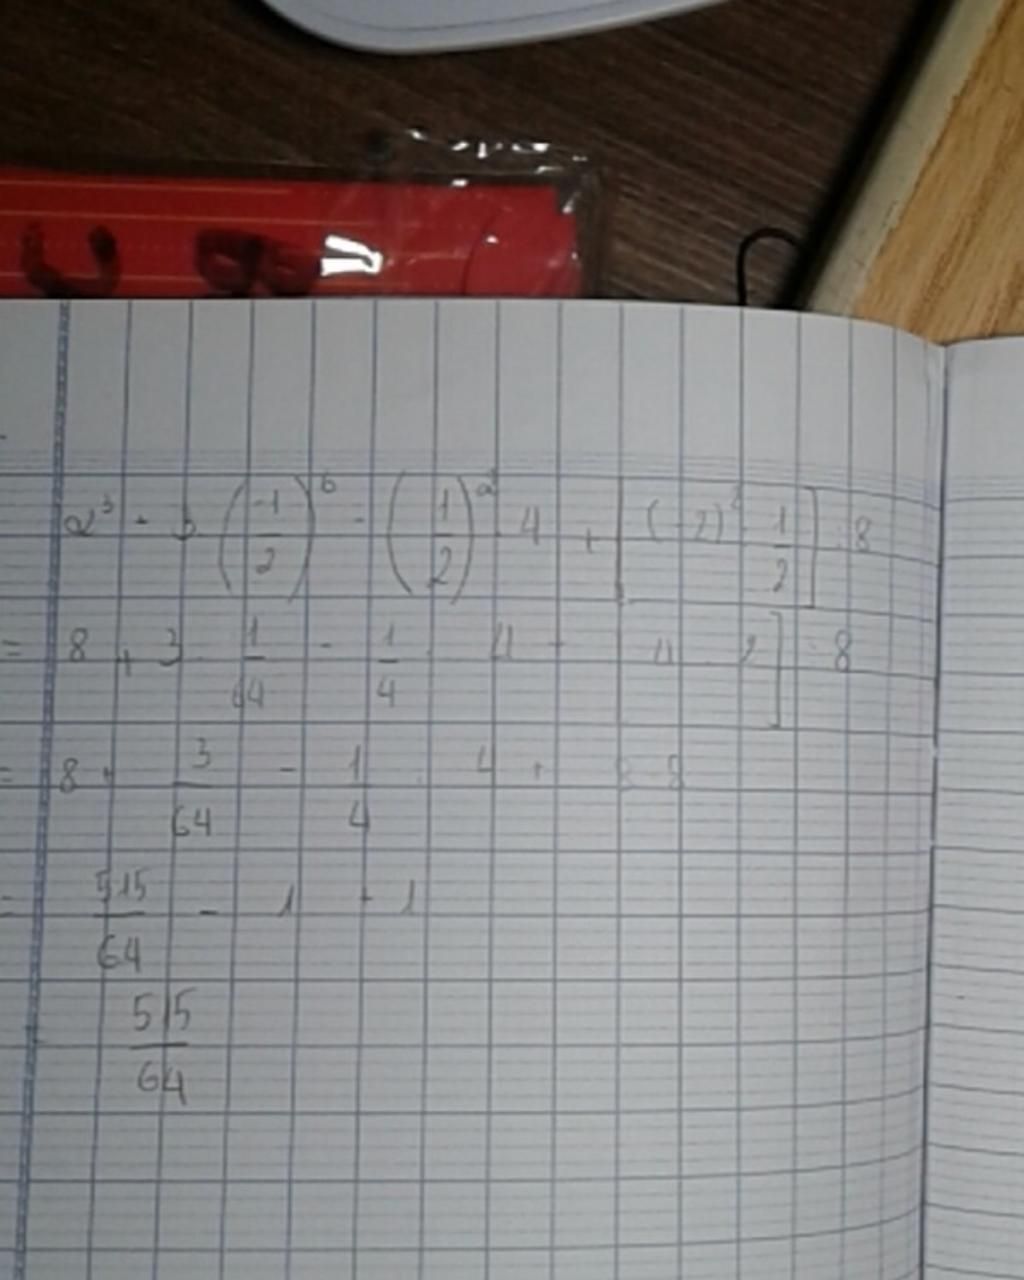 2³ + 3 · (-1/2)⁶ - (1/2)² · 4 + [(-2)² : 1/2] : 8
= 8 + 3 · 1/64 - 1/4 · 4 + [4 · 2] : 8
= 8 + 3/64 - 1/4 · 4 + 8 : 8
= 515/64 - 1 + 1
515/64